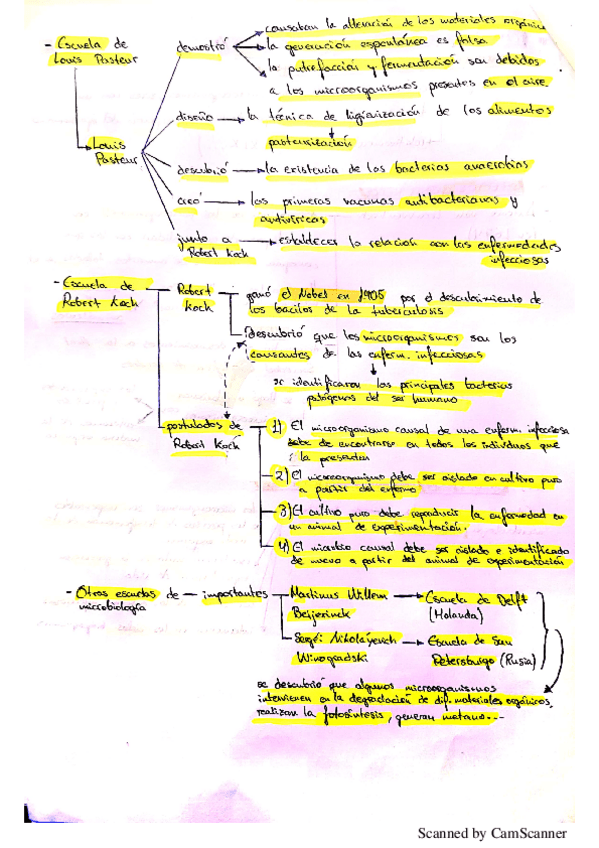 causaban la alteración de los materiales orgánic
- Escuela de Louis Pasteur
demostró
la generación espontánea es falsa
la putrefacción y fermentación son debidos
a los microorganismos presentes en el aire.
Louis Pasteur
diseño
la técnica de higienización de los alimentos
pasteurización
descubrió
la existencia de las bacterias anaerobias
creó
las primeras vacunas antibacterianas y
antivíricas
junto a Robert Koch
establecer la relación con las enfermedades
infecciosas
- Escuela de Robert Koch
Robert Koch
ganó el Nobel en 1905 por el descubrimiento de
los bacilos de la tuberculosis
descubrió que los microorganismos son los
causantes de las enferm. infecciosas
se identificaron las principales bacterias
patógenas del ser humano
postulados de Robert Koch
1) El microorganismo causal de una enferm. infecciosa
debe de encontrarse en todos los individuos que
la presentan
2) El microorganismo debe ser aislado en cultivo puro
a partir del enfermo
3) El cultivo puro debe reproducir la enfermedad en
un animal de experimentación.
4) El microbio causal debe ser aislado e identificado
de nuevo a partir del animal de experimentación
- Otras escuelas de microbiología
importantes
Martinus Willem Beijerinck
Escuela de Delft (Holanda)
Sergéi Nikoláyevich Winogradski
Escuela de San Petersburgo (Rusia)
se descubrió que algunos microorganismos
intervienen en la degradación de dif. materiales orgánicos,
realizan la fotosíntesis, generan metano...
Scanned by CamScanner